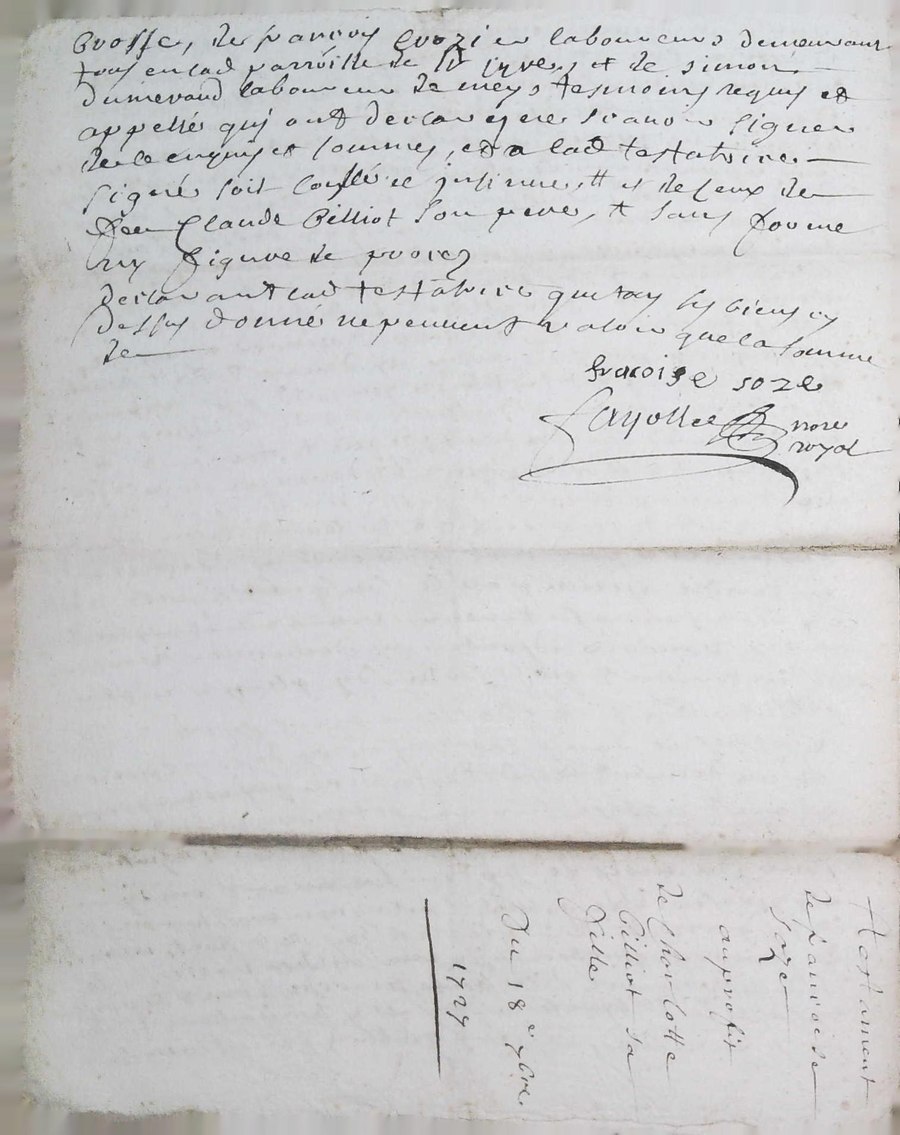 Brosse, de francois Crozier laboureurs demeurant
tous en lad parroisse de St cyre, et de simon
dumevaud laboureur de meys tesmoins requis et
appellés qui ont declaré ne scavoir signer
de ce enquis et sommes, et a lad testatrice
signé soit con^lle et insinue, et de ceux de
Claude Billiot son pere, sans forme
ny figure de proces
declarant lad testatrice que tous les biens cy
dessus donne ne peuvent valoir que la somme
de
fracoise soze
Fayolle nore
royal
testament
de francoise
soze
au profit
de Charlotte
Billiot sa
fille
Du 18e 7bre
1727